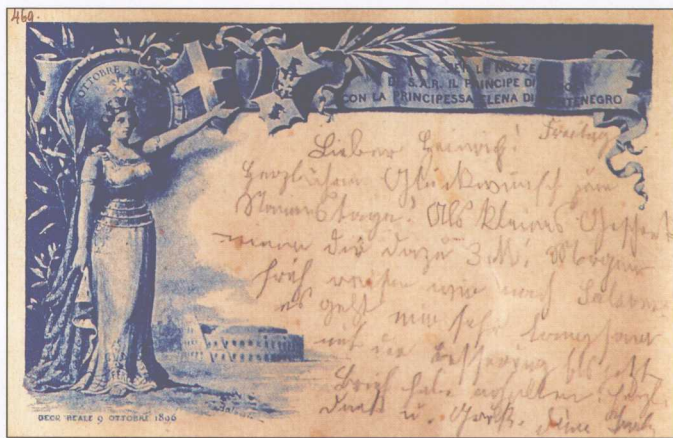 469.
OTTOBRE M
PER LE NOZZE
DI S.A.R. IL PRINCIPE DI
CON LA PRINCIPESSA ELENA DI MONTENEGRO
Freitag
Lieber Heinrich!
Herzlichen Glückwunsch zum
Namenstage! Als kleines Geschenk
dir dazu 3 M. Morgen
früh reisen wir nach
es geht mir sehr langsam
mit der Besserung bis jetzt
Brief habe erhalten
Dank u. Gruß. Deine
DECR REALE 9 OTTOBRE 1896